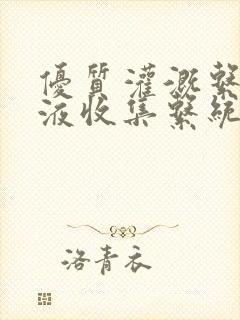 優質灌溉繫
液收集繫統
洛青衣